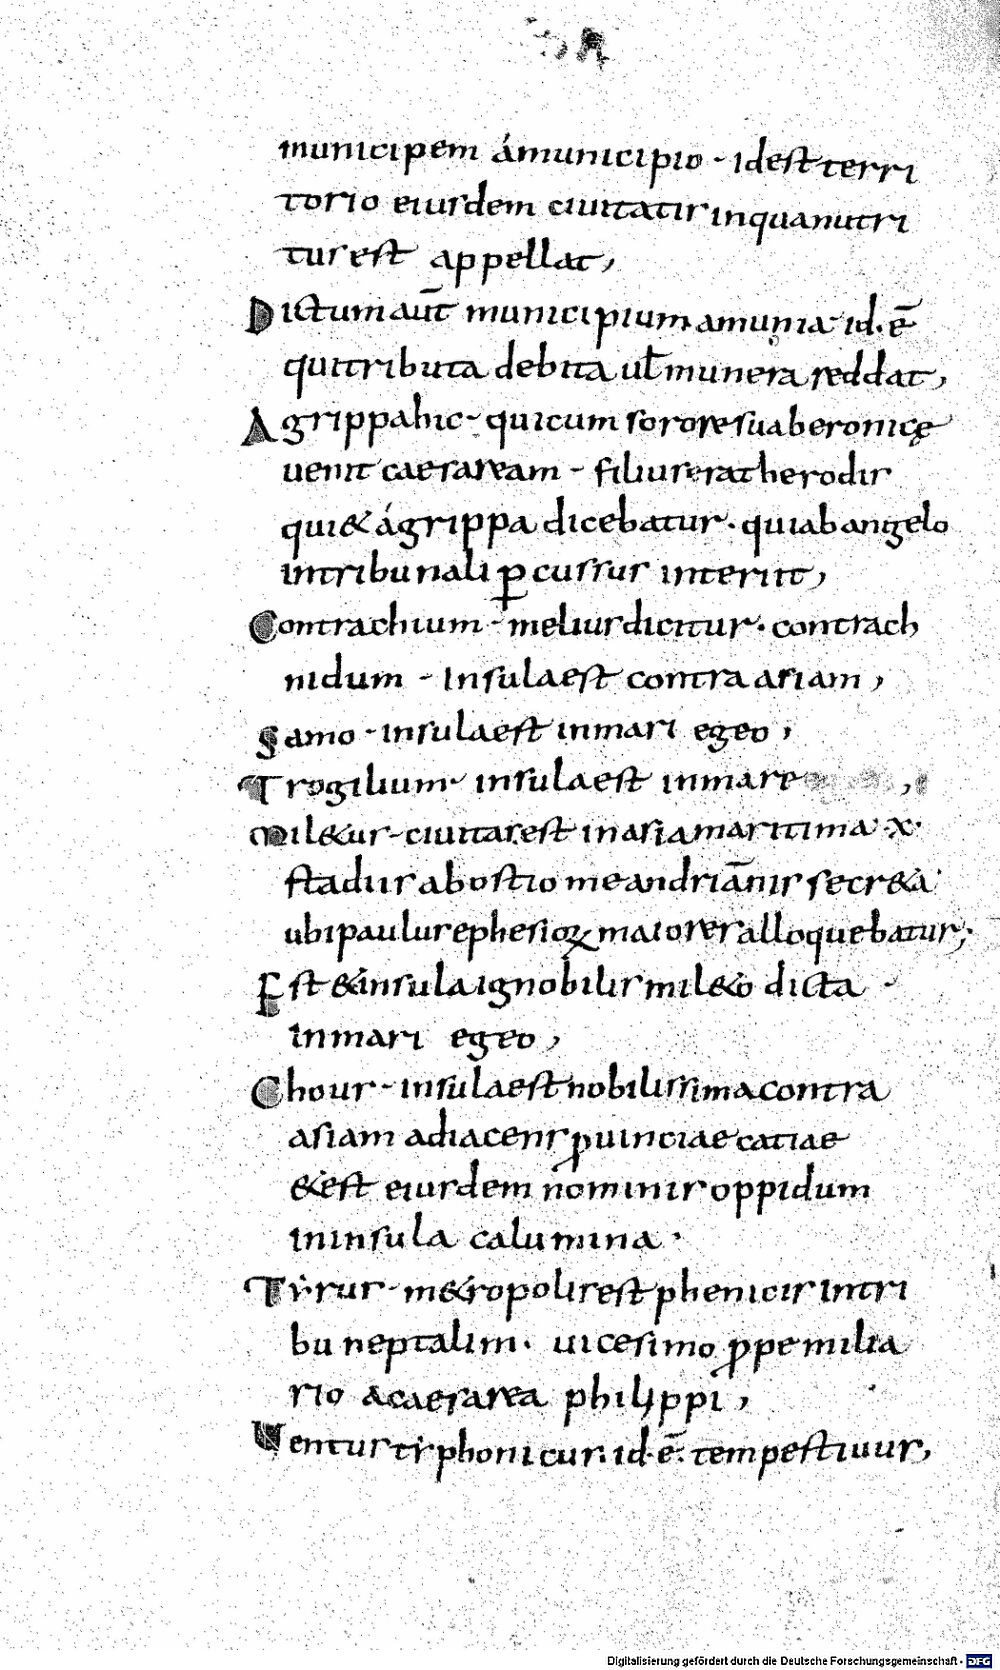 municipem ámunicipio - idest terri
torio eiusdem ciuitatis inquanutri
tus est appellat,
Dictum aut̄ municipium amunia id. ē
qui tributa debita ul̄ munera reddat,
Agrippa hic - quicum sorore sua beronicę
uenit caesaream - filius erat herodis
qui & ágrippa dicebatur. qui ab angelo
intribunali ꝑcussus interiit,
Contrachium - melius dicitur. contrach
nidum - Insula est contra asiam,
Samo - insula est inmari egeo,
Trogilium - insula est inmare
Mil&us - ciuitas est in asia maritima · x ·
stadiis ab ostio meandri ān̄is secr&a
ubi paulus ephesioꝝ maiores alloquebatur;
Est & insula ignobilis mil&o dicta
inmari egeo,
Chous - insula est nobilissima contra
asiam adiacens ꝓuinciae catiae
& est eiusdem nominis oppidum
in insula calumina ·
Tẏrus - m&ropolis est phenicis intri
bu neptalim. uicesimo ꝓpe milia
rio acaesarea philippi,
Uentus tẏphonicus. id. ē. tempestiuus,
Digitalisierung gefördert durch die Deutsche Forschungsgemeinschaft - DFG